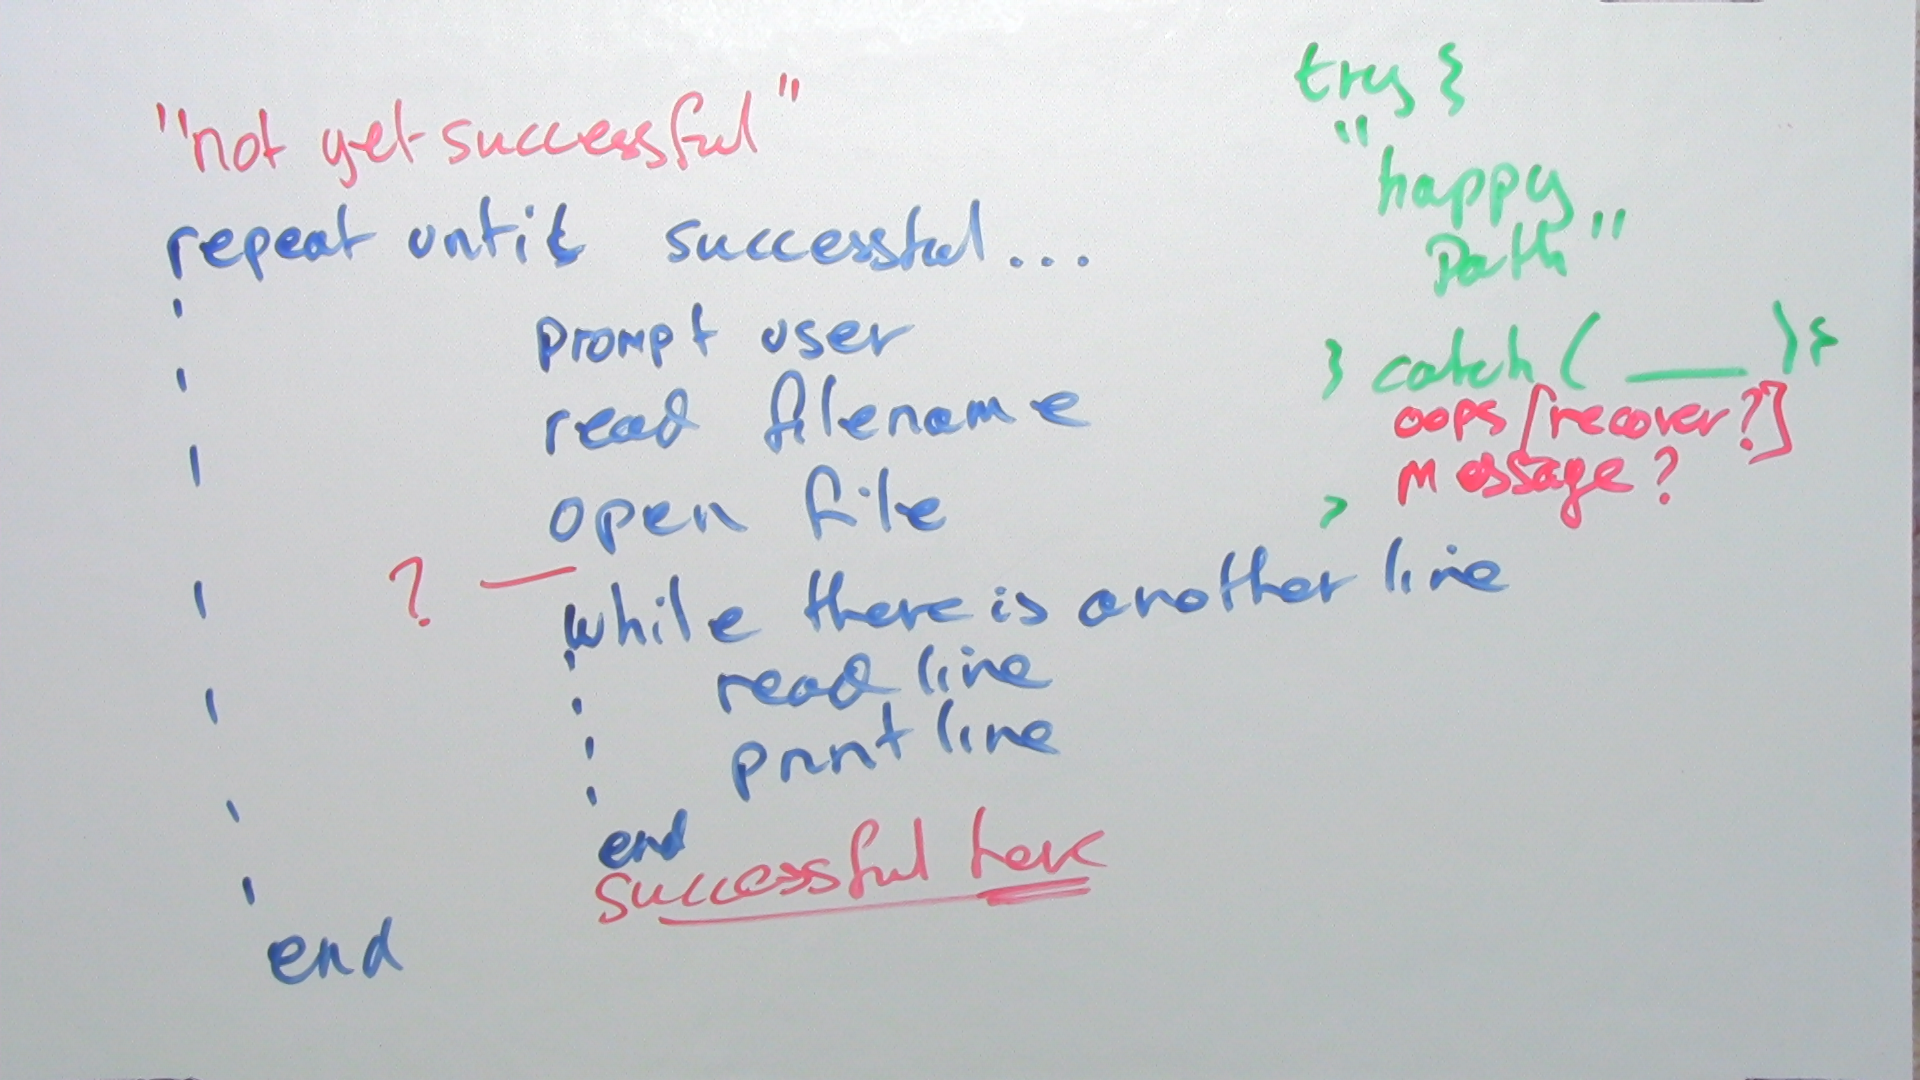 "not yet successful"
repeat until successful...
prompt user
read filename
open file
? — while there is another line
read line
print line
end
successful here
end
try {
"happy
Path"
} catch ( ___ ) {
oops [recover?]
message?
}